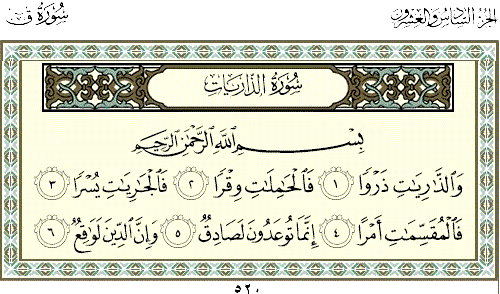 الجزء السادس والعشرون سورة ق
سورة الذاريات
بِسْمِ اللَّهِ الرَّحْمَٰنِ الرَّحِيمِ
وَالذَّارِيَاتِ ذَرْوًا ١ فَالْحَامِلَاتِ وِقْرًا ٢ فَالْجَارِيَاتِ يُسْرًا ٣
فَالْمُقَسِّمَاتِ أَمْرًا ٤ إِنَّمَا تُوعَدُونَ لَصَادِقٌ ٥ وَإِنَّ الدِّينَ لَوَاقِعٌ ٦
٥٢٠